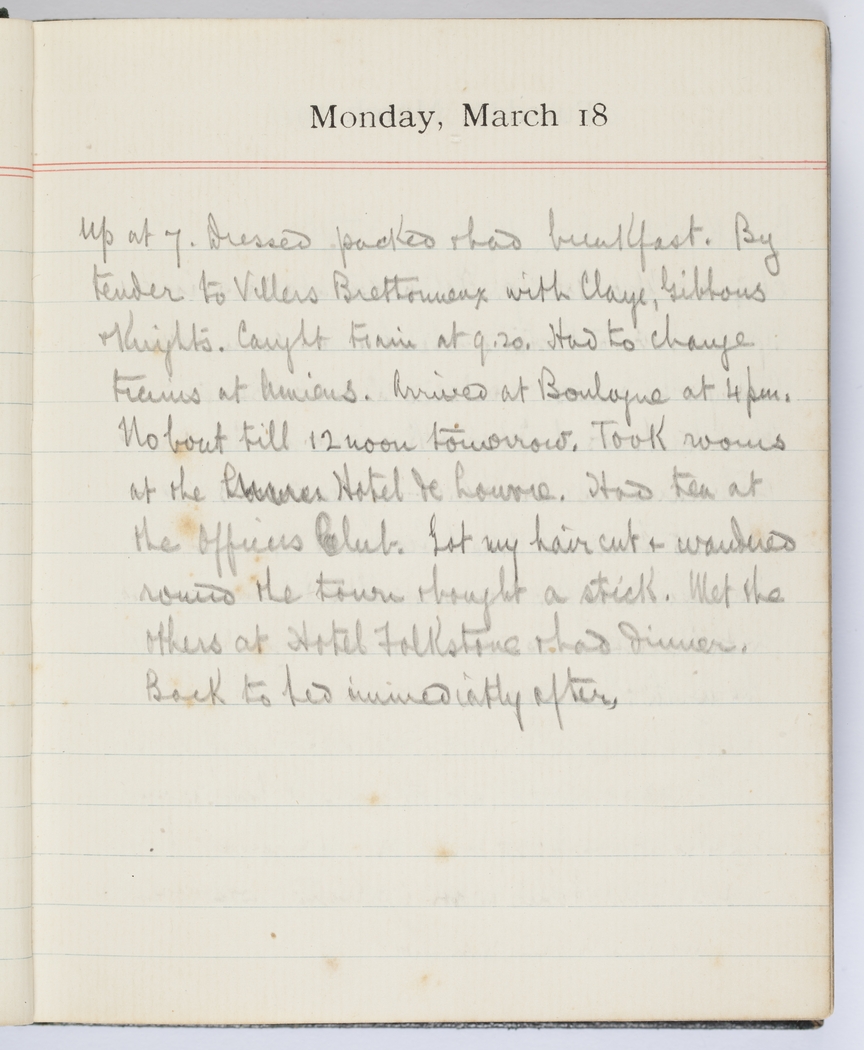 Monday, March 18
Up at 7. Dressed packed & had breakfast. By
tender to Villers Brettonneux with Claye, Gibbons
& Knights. Caught train at 9.20. Had to change
trains at Amiens. Arrived at Boulogne at 4 pm.
No boat till 12 noon tomorrow. Took rooms
at the Hotel de Louvre. Had tea at
the Officers Club. Got my hair cut & wandered
round the town & bought a stick. Met the
others at Hotel Folkstone & had dinner.
Back to bed immediatly after,